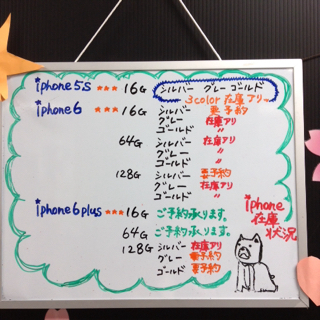 iphone5s *** 16G シルバー グレー ゴールド
3color 在庫アリ
iphone6 *** 16G シルバー 要予約
グレー 在庫アリ
ゴールド 〃
64G シルバー 在庫アリ
グレー 〃
ゴールド 〃
128G シルバー 要予約
グレー 在庫アリ
ゴールド 〃
iphone6plus *** 16G ご予約承ります。
64G ご予約承ります。
128G シルバー 在庫アリ
グレー 要予約
ゴールド 要予約
iphone
在庫
状況